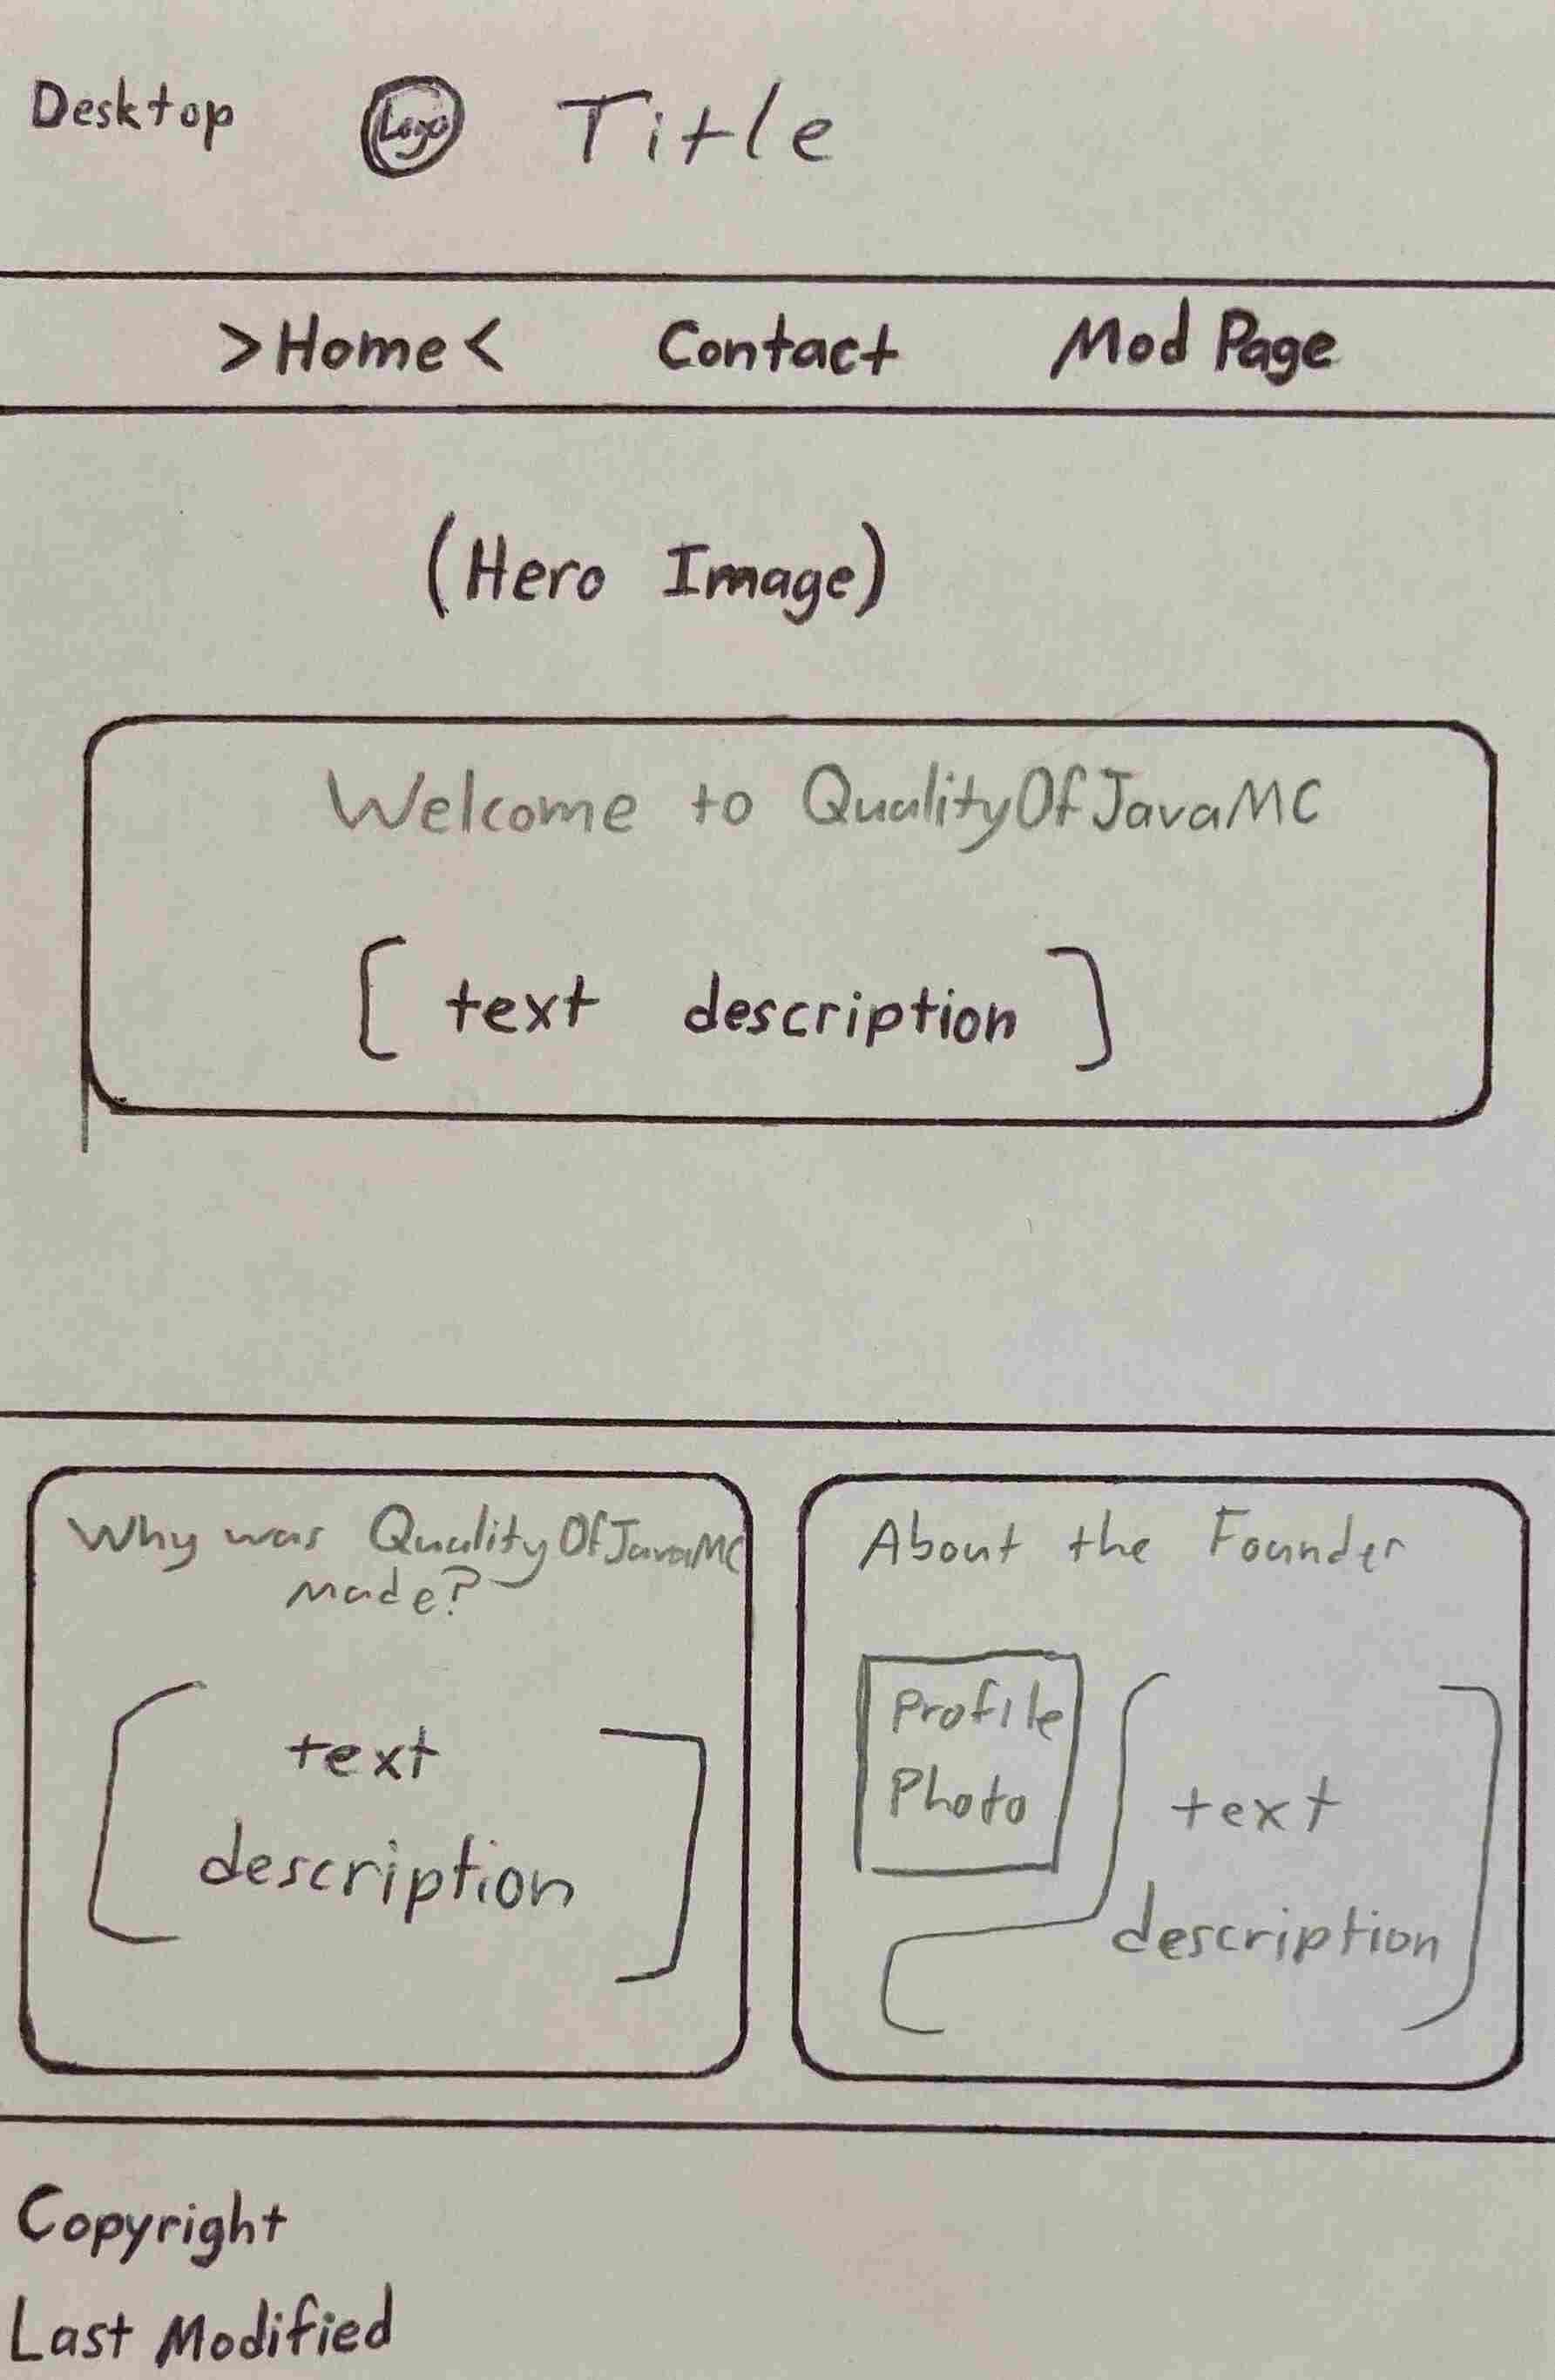 Desktop Logo Title
>Home< Contact Mod Page
(Hero Image)
Welcome to QualityOfJavaMC
[text description]
Why was QualityOfJavaMC
made?
[text
description]
About the Founder
Profile
Photo
[text
description]
Copyright
Last Modified